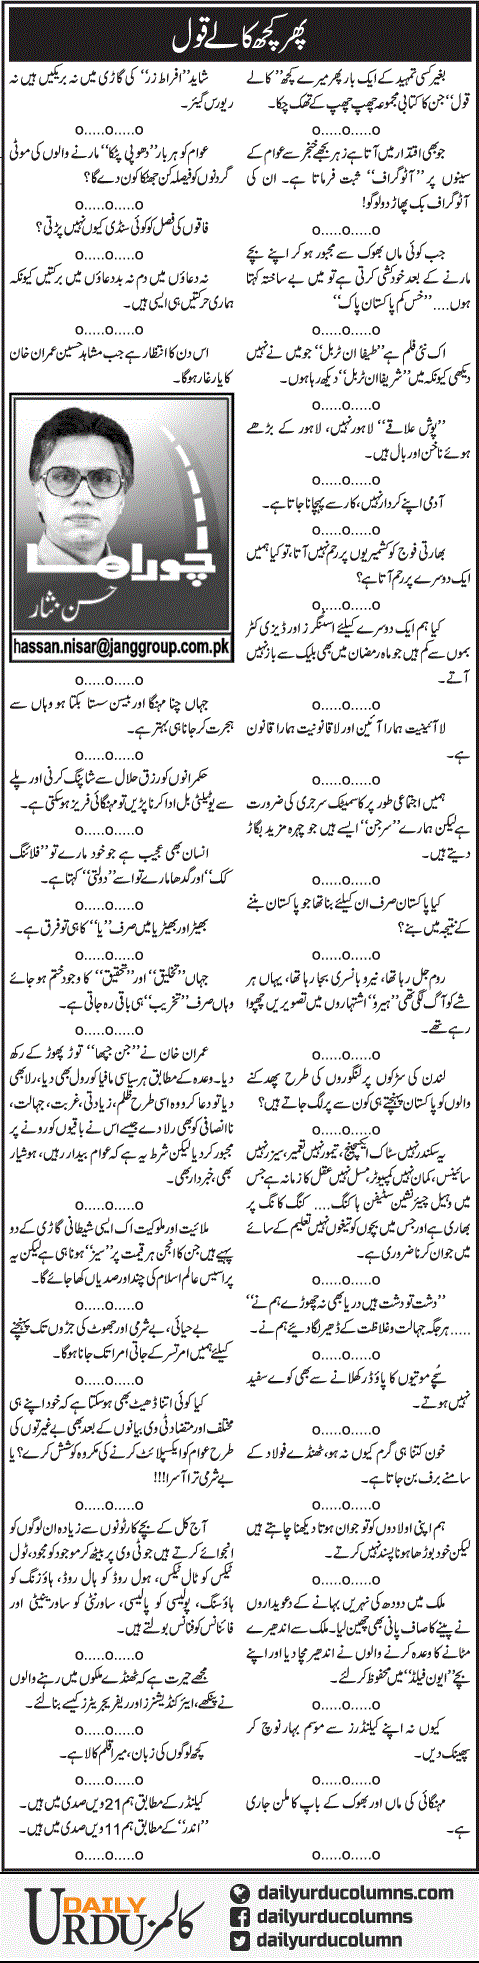 پھر کچھ کالے قول
بغیر کسی تمہید کے ایک بار پھر میرے کچھ ’’کالے
قول‘‘ جن کا کتابی مجموعہ چھپ چھپ کے تھک چکا۔
O.....O.....O
جو بھی اقتدار میں آتا ہے زہر بجھے خنجر سے عوام کے
سینوں پر ’’آٹو گراف‘‘ ثبت فرماتا ہے۔ ان کی
آٹو گراف بک پھاڑ دو لوگو!
O.....O.....O
جب کوئی ماں بھوک سے مجبور ہو کر اپنے بچے
مارنے کے بعد خودکشی کرتی ہے تو میں بے ساختہ کہتا
ہوں.... ’’خس کم پاکستان پاک‘‘
O.....O.....O
اک نئی فلم ہے ’’طیفا ان ٹربل‘‘ جو میں نے نہیں
دیکھی کیونکہ میں ’’شریفا ان ٹربل‘‘ دیکھ رہا ہوں۔
O.....O.....O
’’پوش علاقے‘‘ لاہور نہیں، لاہور کے بڑھے
ہوئے ناخن اور بال ہیں۔
O.....O.....O
آدمی اپنے کردار نہیں، کار سے پہچانا جاتا ہے۔
O.....O.....O
بھارتی فوج کو کشمیریوں پر رحم نہیں آتا، تو کیا ہمیں
ایک دوسرے پر رحم آتا ہے؟
O.....O.....O
کیا ہم ایک دوسرے کیلئے اسٹنگرز اور ڈیزی کٹر
بموں سے کم ہیں جو ماہ رمضان میں بھی بلیک سے باز نہیں
آتے۔
O.....O.....O
لا آئینیت ہمارا آئین اور لاقانونیت ہمارا قانون
ہے۔
O.....O.....O
ہمیں اجتماعی طور پر کاسمیٹک سرجری کی ضرورت
ہے لیکن ہمارے ’’سرجن‘‘ ایسے ہیں جو چہرہ مزید بگاڑ
دیتے ہیں۔
O.....O.....O
کیا پاکستان صرف ان کیلئے بنا تھا جو پاکستان بننے
کے نتیجہ میں بنے؟
O.....O.....O
روم جل رہا تھا، نیرو بانسری بجا رہا تھا، یہاں ہر
شے کو آگ لگی تھی ’’ہیرو‘‘ اشتہاروں میں تصویریں چھپوا
رہے تھے۔
O.....O.....O
لندن کی سڑکوں پر لنگوروں کی طرح پھدکنے
والوں کو پاکستان پہنچتے ہی کون سے پر لگ جاتے ہیں؟
O.....O.....O
یہ سکندر نہیں سٹاک ایکسچینج، تیمور نہیں تعمیر، سیزر نہیں
سائینس، کمان نہیں کمپیوٹر، مسل نہیں عقل کا زمانہ ہے جس
میں وہیل چیئر نشین سٹیفن ہاکنگ.... کنگ کانگ پر
بھاری ہے اور جس میں بچوں کو تیغوں نہیں تعلیم کے سائے
میں جوان کرنا ضروری ہے۔
O.....O.....O
’’دشت تو دشت ہیں دریا بھی نہ چھوڑے ہم نے‘‘
..... ہر جگہ جہالت و غلاظت کے ڈھیر لگا دیئے ہم نے۔
O.....O.....O
سچے موتیوں کا پاؤڈر کھلانے سے بھی کوے سفید
نہیں ہوتے۔
O.....O.....O
خون کتنا ہی گرم کیوں نہ ہو، ٹھنڈے فولاد کے
سامنے برف بن جاتا ہے۔
O.....O.....O
ہم اپنی اولادوں کو تو جوان ہوتا دیکھنا چاہتے ہیں
لیکن خود بوڑھا ہونا پسند نہیں کرتے۔
O.....O.....O
ملک میں دودھ کی نہریں بہانے کے دعویداروں
نے پینے کا صاف پانی بھی چھین لیا۔ ملک سے اندھیرے
مٹانے کا وعدہ کرنے والوں نے اندھیر مچا دیا اور اپنے
بچے ’’ایون فیلڈ‘‘ میں محفوظ کر لئے۔
O.....O.....O
کیوں نہ اپنے کیلنڈرز سے موسم بہار نوچ کر
پھینک دیں۔
O.....O.....O
مہنگائی کی ماں اور بھوک کے باپ کا ملن جاری
ہے۔
O.....O.....O
شاید ’’افراط زر‘‘ کی گاڑی میں نہ بریکیں ہیں نہ
ریورس گیئر۔
O.....O.....O
عوام کو ہر بار ’’دھوبی پٹکا‘‘ مارنے والوں کی موٹی
گردنوں کو فیصلہ کن جھٹکا کون دے گا؟
O.....O.....O
فاقوں کی فصل کو کوئی سنڈی کیوں نہیں پڑتی؟
O.....O.....O
نہ دعاؤں میں دم نہ بددعاؤں میں برکتیں کیونکہ
ہماری حرکتیں ہی ایسی ہیں۔
O.....O.....O
اس دن کا انتظار ہے جب مشاہد حسین عمران خان
کا یار غار ہو گا۔
چوراہا
حسن نثار
hassan.nisar@janggroup.com.pk
O.....O.....O
جہاں چنا مہنگا اور بیسن سستا بکتا ہو وہاں سے
ہجرت کر جانا ہی بہتر ہے۔
O.....O.....O
حکمرانوں کو رزق حلال سے شاپنگ کرنی اور پلے
سے یوٹیلٹی بل ادا کرنا پڑیں تو مہنگائی فریز ہو سکتی ہے۔
O.....O.....O
انسان بھی عجیب ہے جو خود مارے تو ’’فلائنگ
کک‘‘ اور گدھا مارے تو اسے ’’دولتی‘‘ کہتا ہے۔
O.....O.....O
بھیڑ اور بھیڑیا میں صرف ’’یا‘‘ کا ہی تو فرق ہے۔
O.....O.....O
جہاں ’’تخلیق‘‘ اور ’’تحقیق‘‘ کا وجود ختم ہو جائے
وہاں صرف ’’تخریب‘‘ ہی باقی رہ جاتی ہے۔
O.....O.....O
عمران خان نے ’’جن جپھا‘‘ توڑ پھوڑ کے رکھ
دیا۔ وعدہ کے مطابق ہر سیاسی مافیا کو رول بھی دیا، رلا بھی
دیا تو دعا کرو وہ اسی طرح ظلم، زیادتی، غربت، جہالت،
ناانصافی کو بھی رلا دے جیسے اس نے باقیوں کو رونے پر
مجبور کر دیا لیکن شرط یہ ہے کہ عوام بیدار رہیں، ہوشیار
بھی، خبردار بھی۔
O.....O.....O
ملائیت اور ملوکیت اک ایسی شیطانی گاڑی کے دو
پہیے ہیں جن کا انجن ہر قیمت پر ’’سیز‘‘ ہونا ہی ہے لیکن یہ
پراسیس عالم اسلام کی چند اور صدیاں کھا جائے گا۔
O.....O.....O
بے حیائی، بے شرمی اور جھوٹ کی جڑوں تک پہنچنے
کیلئے ہمیں امرتسر کے جاتی امرا تک جانا ہو گا۔
O.....O.....O
کیا کوئی اتنا ڈھیٹ بھی ہو سکتا ہے کہ خود اپنے ہی
مختلف اور متضاد ٹی وی بیانوں کے بعد بھی بے غیرتوں کی
طرح عوام کو ایکسپلائٹ کرنے کی مکروہ کوشش کرے؟ یا
بے شرمی تیرا آسرا!!!
O.....O.....O
آج کل کے بچے کارٹونوں سے زیادہ ان لوگوں کو
انجوائے کرتے ہیں جو ٹی وی پر بیٹھ کر موجود کو مجود، ٹول
ٹیکس کو ٹال ٹیکس، ہول روڈ کو ہال روڈ، ہاؤزنگ کو
ہاؤسنگ، پولیسی کو پالیسی، ساورنٹی کو ساورینیٹی اور
فائنانس کو فنانس بولتے ہیں۔
O.....O.....O
مجھے حیرت ہے کہ ٹھنڈے ملکوں میں رہنے والوں
نے پنکھے، ایئر کنڈیشنرز اور ریفریجریٹرز کیسے بنا لئے۔
O.....O.....O
کچھ لوگوں کی زبان، میرا قلم کالا ہے۔
O.....O.....O
کیلنڈر کے مطابق ہم 21 ویں صدی میں ہیں۔
’’اندر‘‘ کے مطابق ہم 11 ویں صدی میں ہیں۔
O.....O.....O
DAILY
URDU کالمز
dailyurducolumns.com
dailyurducolumns
dailyurducolumn